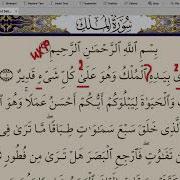 سُورَةُ الْمُلْكِ
بِسْمِ اللَّهِ الرَّحْمَٰنِ الرَّحِيمِ
2 2
بِيَدِهِ الْمُلْكُ وَهُوَ عَلَىٰ كُلِّ شَيْءٍ قَدِيرٌ
وَالْحَيَوٰةَ لِيَبْلُوَكُمْ أَيُّكُمْ أَحْسَنُ عَمَلًا وَهُوَ
خَلَقَ سَبْعَ سَمَٰوَٰتٍ طِبَاقًا مَّا تَرَىٰ فِي
تَفَٰوُتٍ فَارْجِعِ الْبَصَرَ هَلْ تَرَىٰ مِن فُطُورٍ